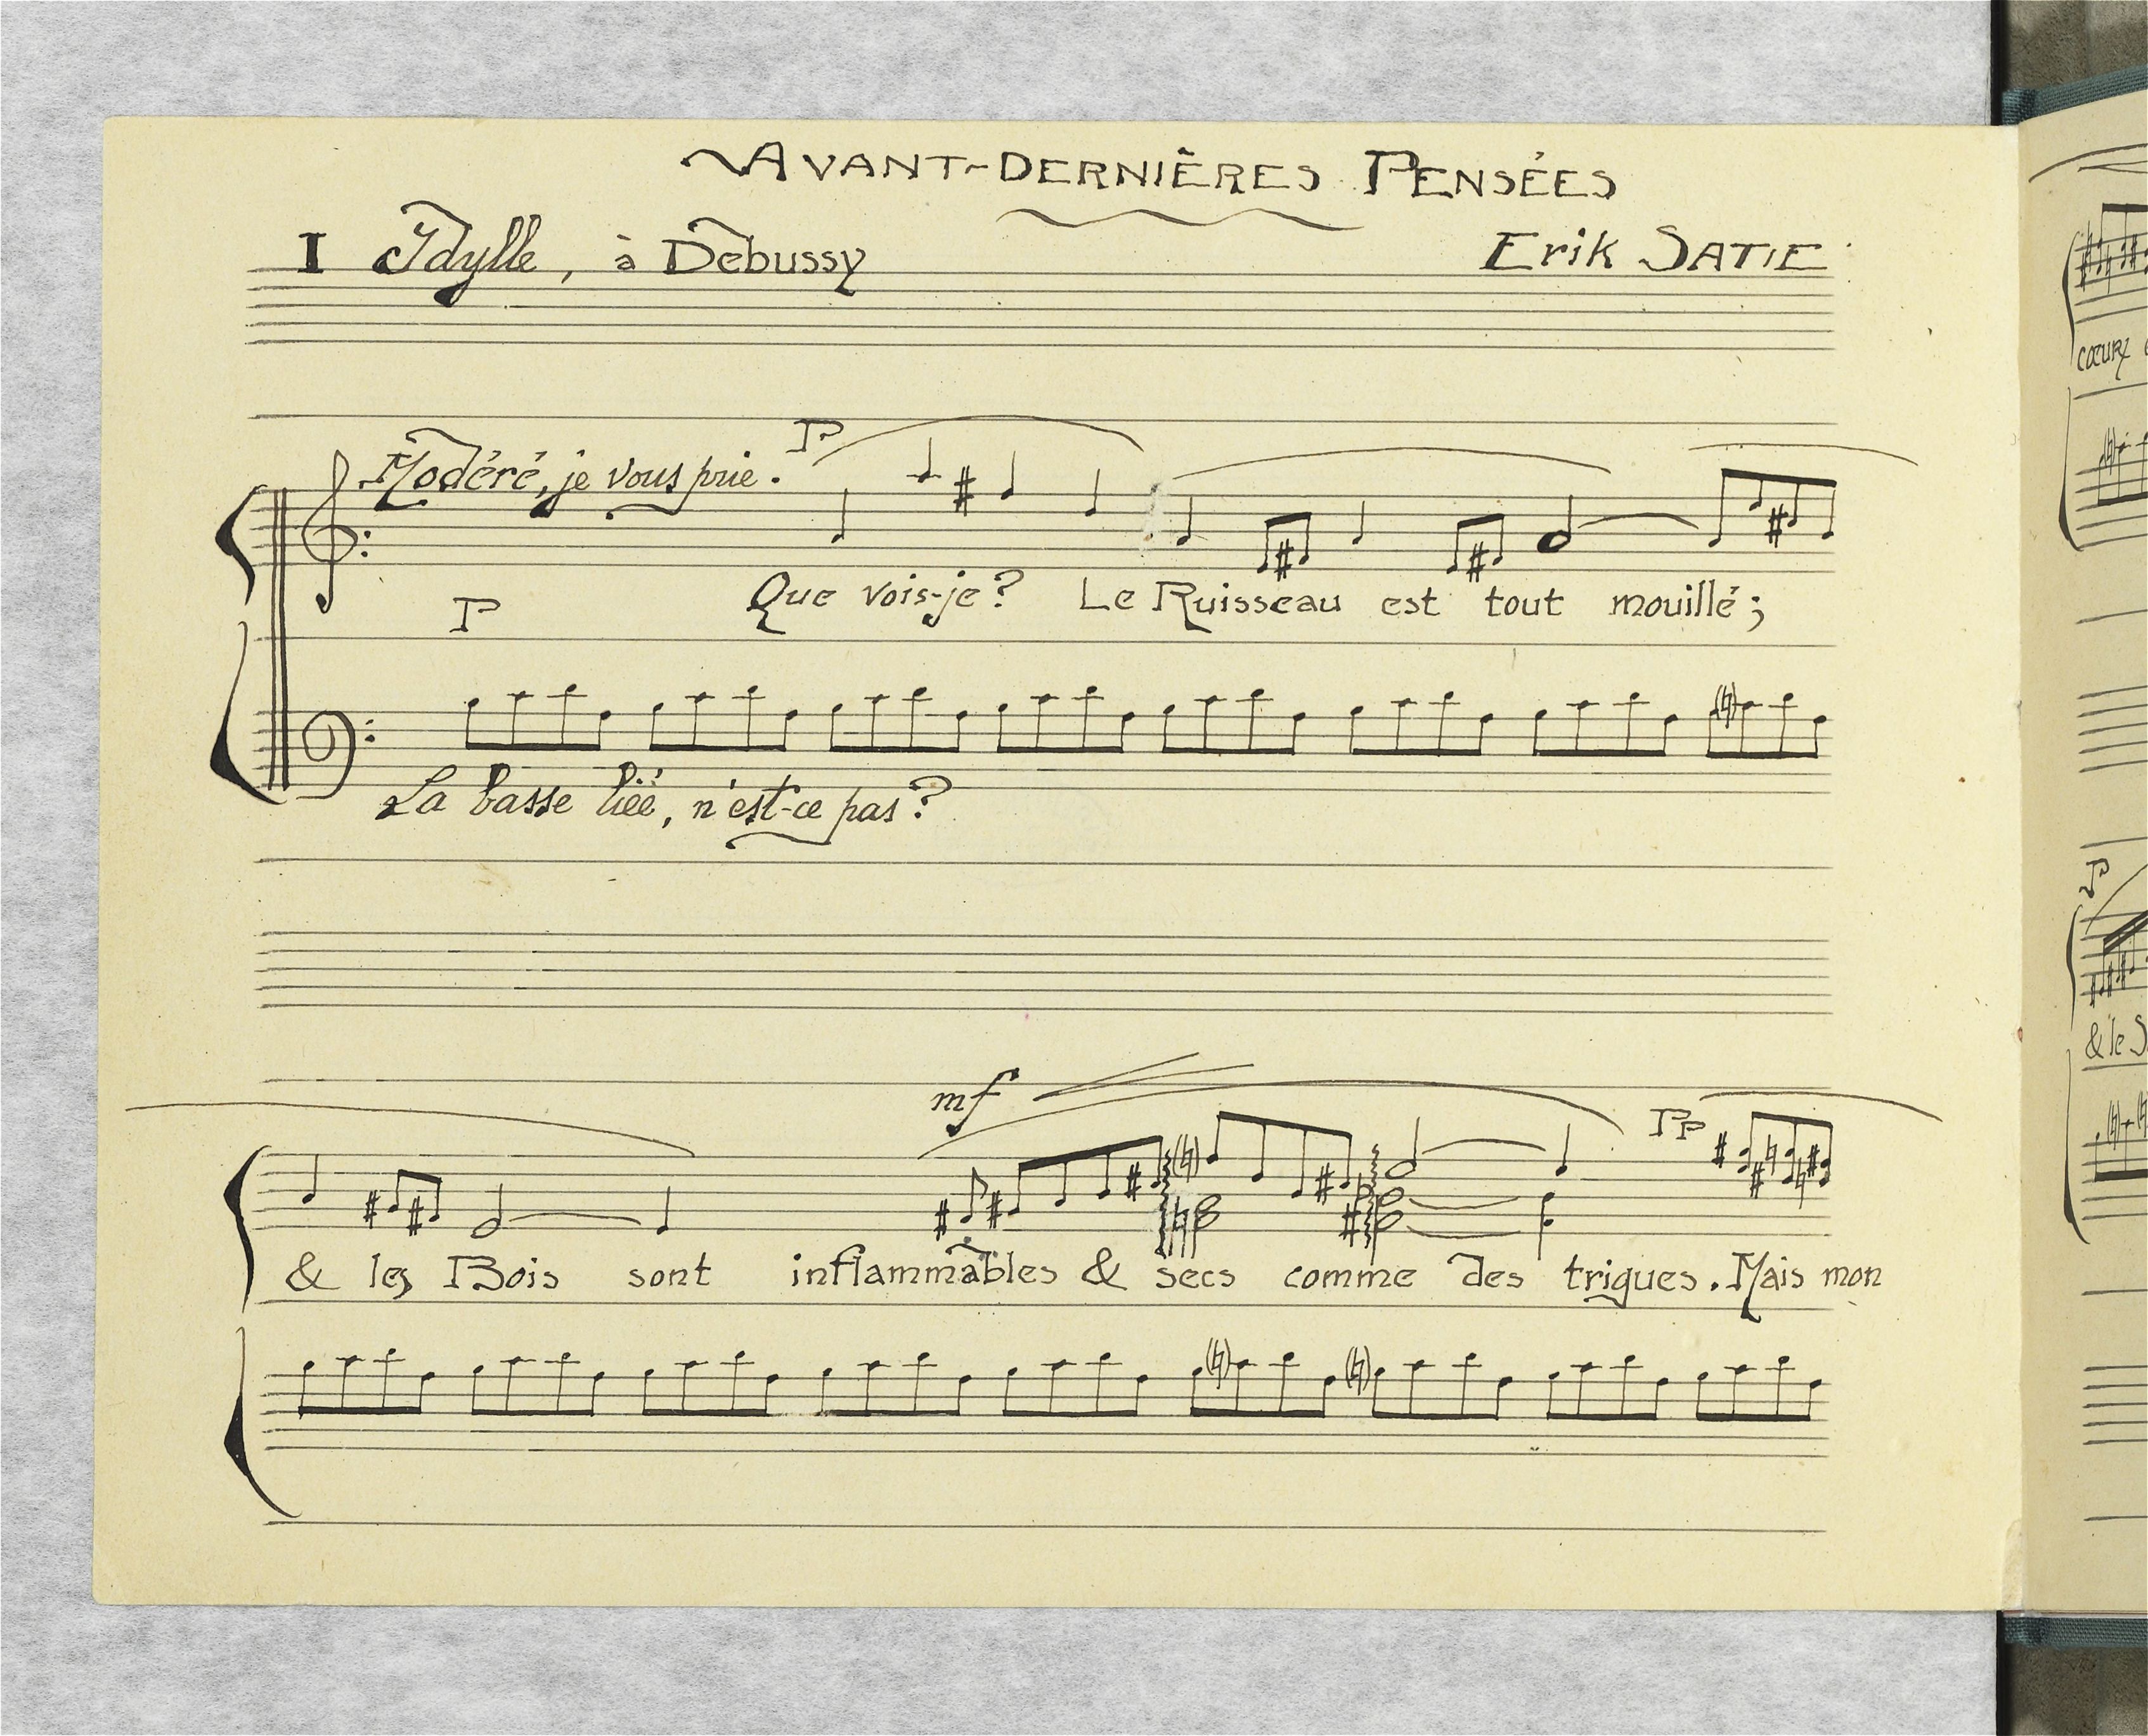 AVANT-DERNIÈRES PENSÉES
I Idylle, à Debussy
Erik SATIE
Modéré, je vous prie.
P
Que vois-je? Le Ruisseau est tout mouillé;
P
La basse liée, n'est-ce pas?
mf
PP
& les Bois sont inflammables & secs comme des triques. Mais mon
cœur
& le